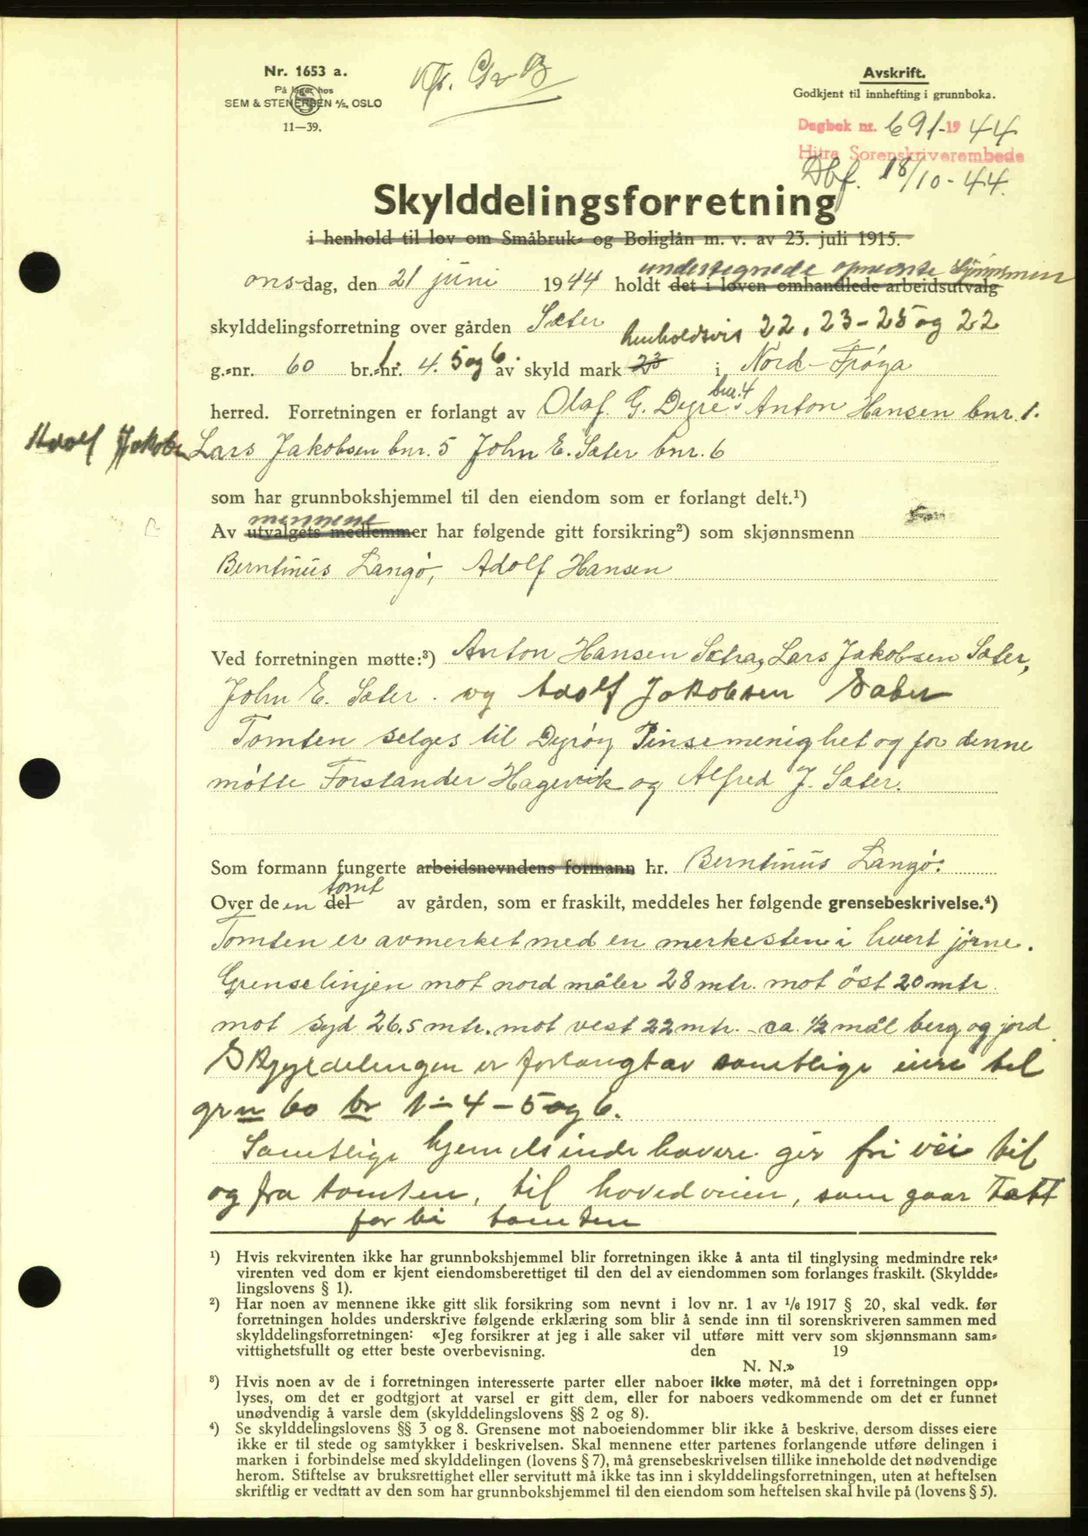 Nr. 1653 a.
På lager hos
SEM & STENERSEN A/S, OSLO
11—39.
Avskrift.
Godkjent til innhefting i grunnboka.
Dagbok nr. 691-1944
Hitra Sorenskriverembede
Dbf. 18/10-44.
Skylddelingsforretning
i henhold til lov om Småbruk- og Boliglån m. v. av 23. juli 1915.
undertegnede opnevnte
ons-dag, den 21 juni 1944 holdt det i loven omhandlede arbeidsutvalg
henholdsvis 22, 23-25 og 22
skylddelingsforretning over gården Sæter
g.-nr. 60 br.-nr. 1. 4. 5 og 6. av skyld mark 23 i Nord-Frøya
herred. Forretningen er forlangt av Olaf G. Dyrø bnr. 4, Anton Hansen bnr. 1.
Adolf Jakobs Lars Jakobsen bnr. 5 John E. Sæter bnr. 6
som har grunnbokshjemmel til den eiendom som er forlangt delt.¹)
mennene
Av utvalgets medlemmer har følgende gitt forsikring²) som skjønnsmenn
Berntinus Langø, Adolf Hansen
Ved forretningen møtte:³) Anton Hansen Setra, Lars Jakobsen Sæter,
John E. Sæter. og Adolf Jakobsen Sæter
Tomten selges til Dyrøy Pinsemenighet og for denne
møtte Forstander Hagevik og Alfred J. Sæter.
Som formann fungerte arbeidsnevndens formann hr. Berntinus Langø.
tomt
Over de en del av gården, som er fraskilt, meddeles her følgende grensebeskrivelse.⁴)
Tomten er avmerket med en merkesten i hvert jørne.
Grenselinjen mot nord måler 28 mtr. mot öst 20 mtr.
mot syd 26.5 mtr. mot vest 22 mtr. - ca. ½ mål berg og jord
Skyldelingen er forlangt av samtlige eiere til
grn 60 br 1-4-5 og 6.
Samtlige hjemelsindehavere gir fri vei til
og fra tomten, til hovedveien, som gaar tett
forbi tomten
¹) Hvis rekvirenten ikke har grunnbokshjemmel blir forretningen ikke å anta til tinglysing medmindre rek-
virenten ved dom er kjent eiendomsberettiget til den del av eiendommen som forlanges fraskilt. (Skyldde-
lingslovens § 1).
²) Har noen av mennene ikke gitt slik forsikring som nevnt i lov nr. 1 av 1/6 1917 § 20, skal vedk. før
forretningen holdes underskrive følgende erklæring som blir å sende inn til sorenskriveren sammen med
skylddelingsforretningen: «Jeg forsikrer at jeg i alle saker vil utføre mitt verv som skjønnsmann sam-
vittighetsfullt og etter beste overbevisning. den 19
N. N.»
³) Hvis noen av de i forretningen interesserte parter eller naboer ikke møter, må det i forretningen opp-
lyses, om det er godtgjort at varsel er gitt dem, eller for naboers vedkommende om det er funnet
unødvendig å varsle dem (skylddelingslovens §§ 2 og 8).
⁴) Se skylddelingslovens §§ 3 og 8. Grensene mot naboeiendommer blir ikke å beskrive, dersom disses eiere
ikke er til stede og samtykker i beskrivelsen. Skal mennene etter partenes forlangende utføre delingen i
marken i forbindelse med skylddelingen (lovens § 7), må grensebeskrivelsen tillike inneholde det nødvendige
herom. Stiftelse av bruksrettighet eller servitutt må ikke tas inn i skylddelingsforretningen, uten at heftelsen
skriftlig er vedtatt av den som har grunnbokshjemmel til den eiendom som heftelsen skal hvile på (lovens § 5).